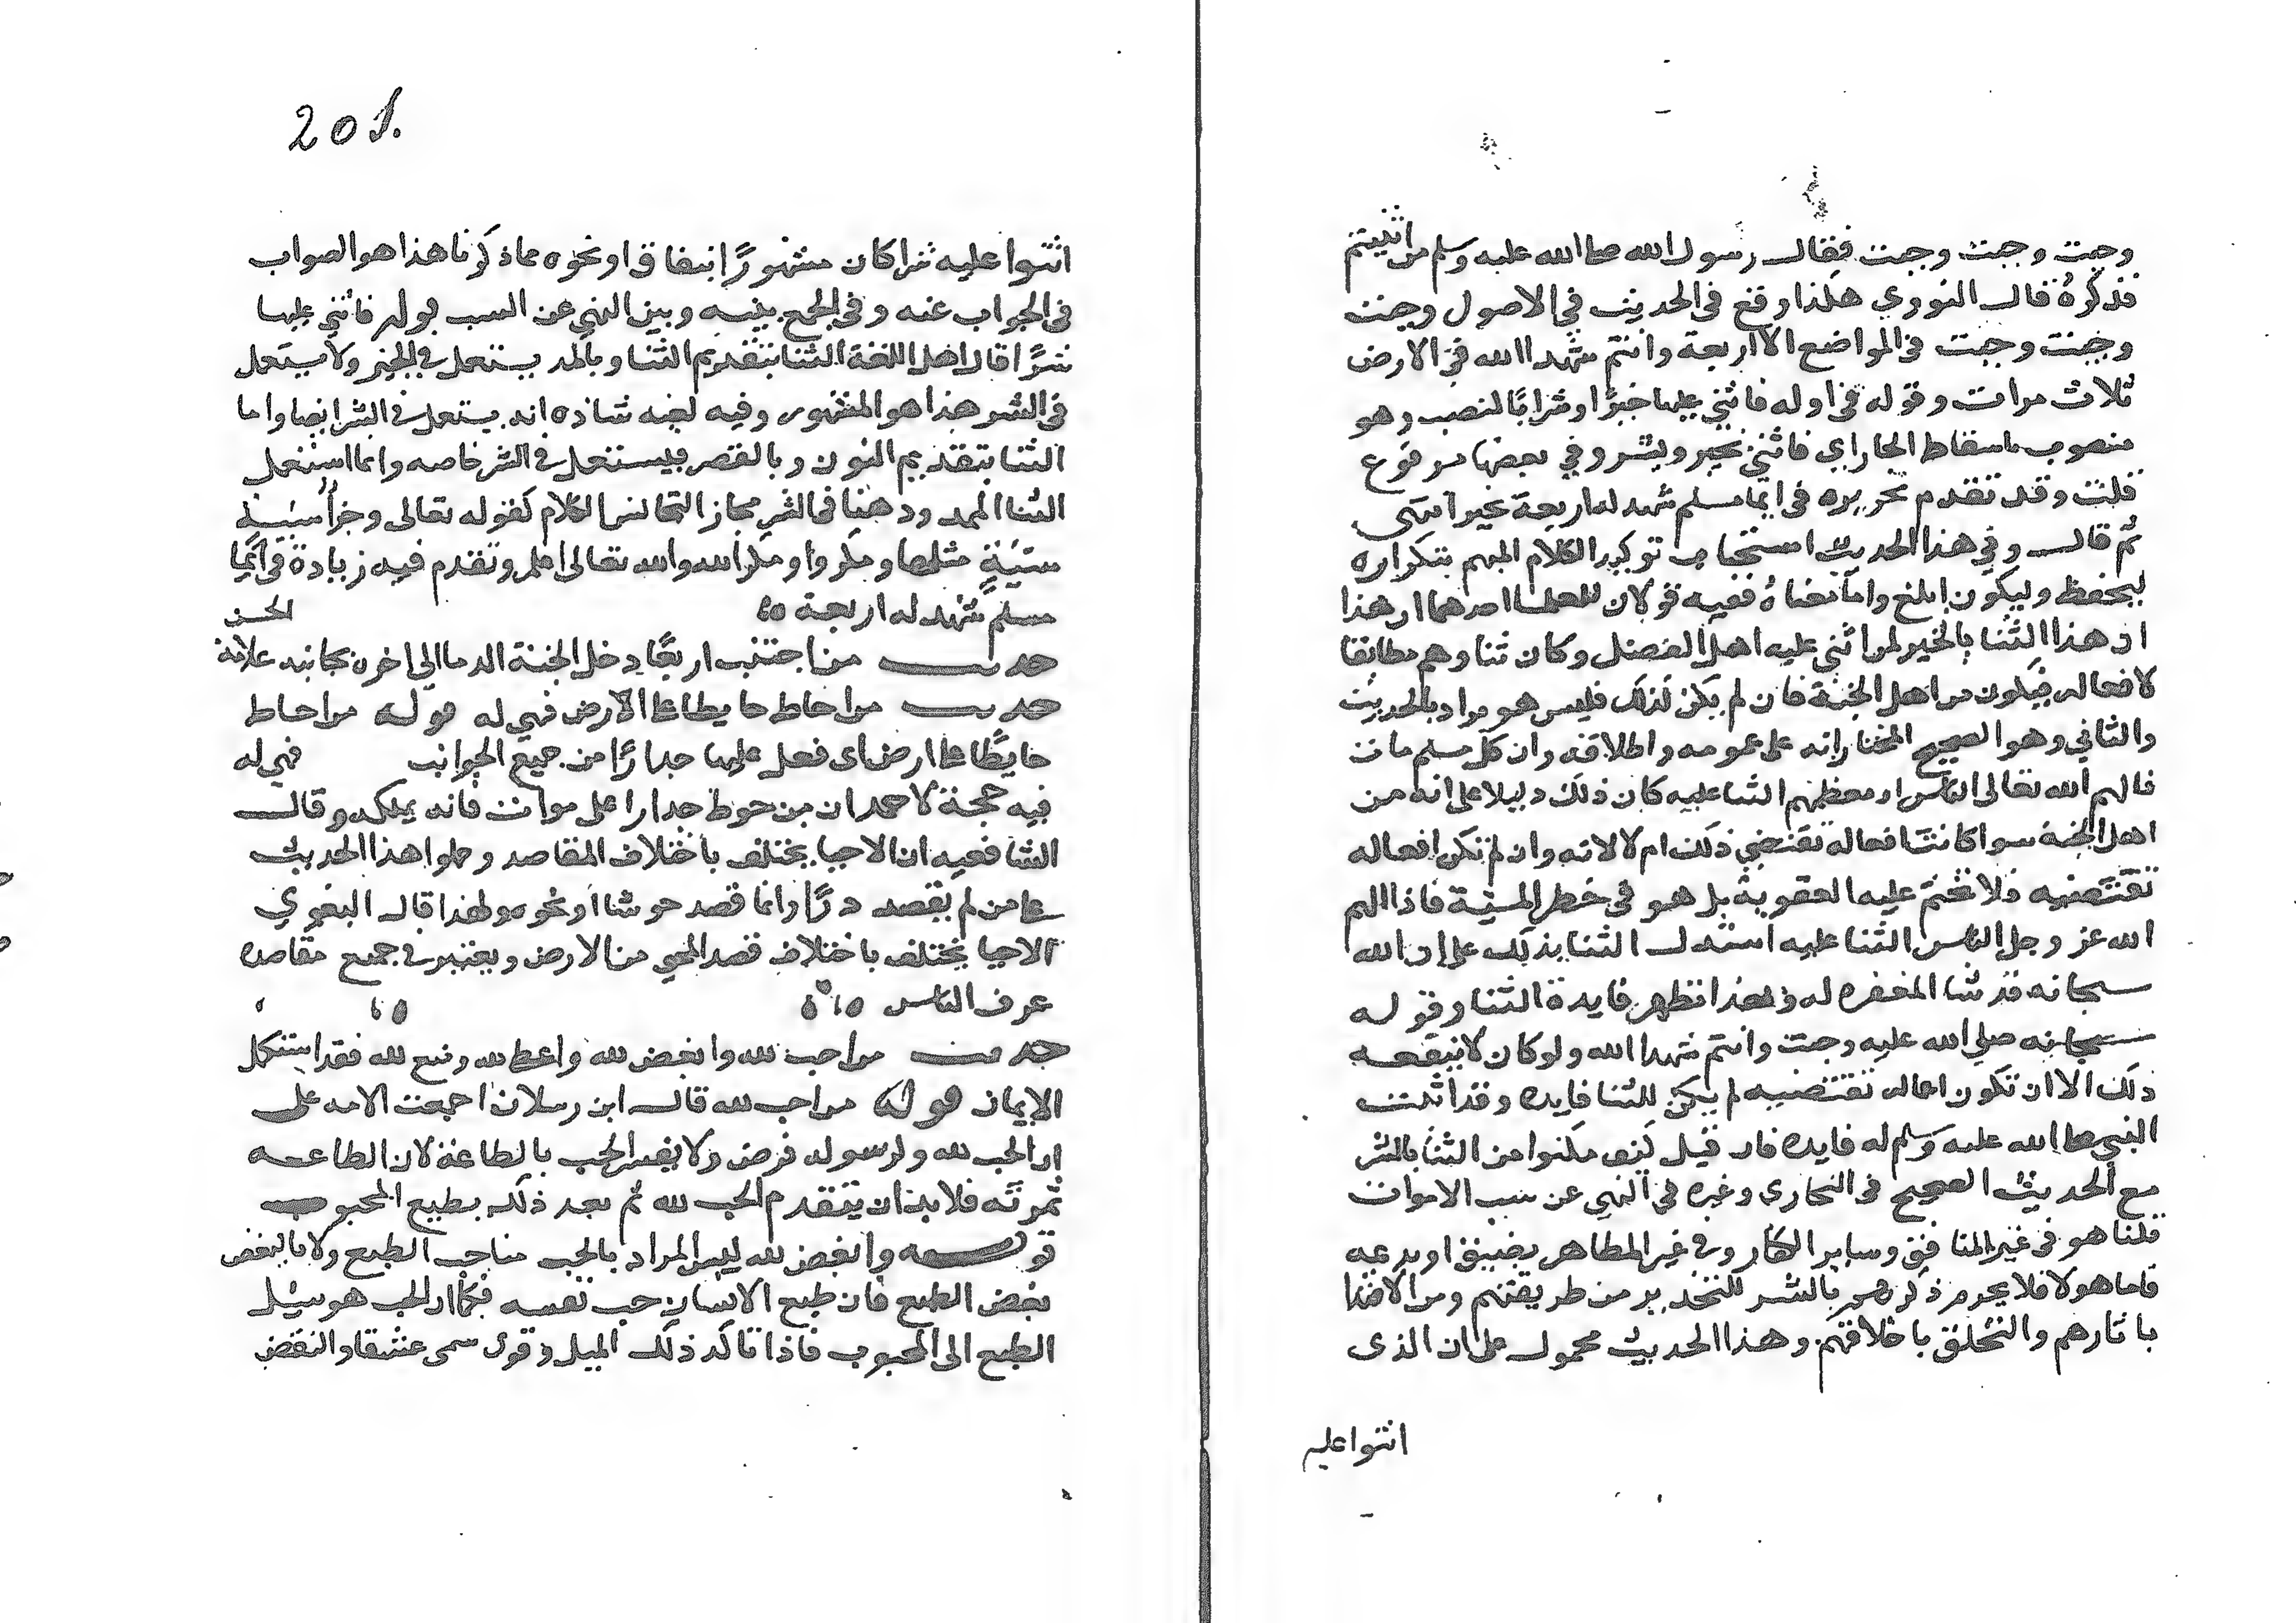 وجبت وجبت وجبت فقال رسول الله صلى الله عليه وسلم من اثنيتم
فذكره قال النووي هكذا وقع في الحديث في الاصول وجبت
وجبت وجبت في المواضع الاربعة وانتم شهدا الله في الارض
ثلاث مرات وقوله في اوله فاثني عليها خيرًا وشرًا بالنصب وهو
منصوب باسقاط الجار اي فاثني بخير وبشر وفي بعضها مرفوع
قلت وقد تقدم تحريره في ايما مسلم شهد له اربعة بخير انتهى
ثم قال وفي هذا الحديث استحباب توكيد الكلام المبهم بتكراره
ليحفظ وليكون ابلغ واما معناه ففيه قولان للعلما احدهما ان هذا
ان هذا الثنا بالخير لمن اثنى عليه اهل الفضل وكان ثناوهم مطابقا
لافعاله فيكون من اهل الجنة فان لم يكن كذلك فليس هو مراد بالحديث
والثاني وهو الصحيح المختار انه على عمومه واطلاقه وان كل مسلم مات
فالهم الله تعالى الناس او معظمهم الثنا عليه كان ذلك دليلا على انه من
اهل الجنة سوا كانت افعاله تقتضي ذلك ام لا لانه وان لم تكن افعاله
تقتضيه فلا تحتم عليه العقوبة بل هو في خطر المشية فاذا الهم
الله عز وجل الناس الثنا عليه استدل الثنا بذلك على ان الله
سبحانه قد شا المغفره له وبهذا تظهر فايدة الثنا وقوله
سبحانه صلى الله عليه وجبت وانتم شهدا الله ولو كان لا ينفعه
ذلك الا ان تكون اعماله تقتضيه لم يكن للثنا فايده وقد اثبت
النبي صلى الله عليه وسلم له فايده فان قيل كيف مكنوا من الثنا بالشر
مع الحديث الصحيح في البخاري وغيره في النهي عن سب الاموات
قلنا هو في غير المنافق وساير الكفار وفي غير المظاهر بفسق او بدعه
فاما هولا فلا يحرم ذكرهم بالشر للتحذير من طريقتهم ومن الاقتدا
باثارهم والتخلق باخلاقهم وهذا الحديث محمول على ان الذي
اثنوا عليه
201.
اثنوا عليه شرا كان مشهورًا بنفاق او نحوه مما ذكرنا هذا هو الصواب
في الجواب عنه وفي الجمع بينه وبين النهي عن السب قوله فاثني عليها
شرًا قال اهل اللغة الثنا بتقديم الثنا وبالمد يستعمل في الخير ولا يستعمل
في الشر هذا هو المشهور وفيه لغه شاذه انه يستعمل في الشر ايضا واما
النثا بتقديم النون وبالقصر فيستعمل في الشر خاصه وانما استعمل
الثنا الممدود هنا في الشر مجاز التجانس الكلام كقوله تعالى وجزأ سيئة
سيئة مثلها ومكروا ومكر الله والله تعالى اعلم وتقدم فيه زيادة في ايما
مسلم شهد له اربعة
حديث من اجتنب اربعًا دخل الجنة الدما الى اخره بجانبه علامة الحسن
حديث من احاط حايطا على الارض فهي له قوله من احاط
حايطًا على ارض اي فعل عليها جدارًا من جميع الجوانب فهي له
فيه حجة لاحمد ان من حوط جدارا على موات فانه يملكه وقال
الشافعيه ان الاحيا يختلف باختلاف المقاصد وحملوا هذا الحديث
على من لم يقصد درًا وانما قصد حوشا او نحوه ولهذا قال البغوي
الاحيا يختلف باختلاف قصد المحيي من الارض ويعتبر في جميع مقاصده
عرف الناس
حديث من احب لله وابغض لله واعطى لله ومنع لله فقد استكمل
الايمان قوله من احب لله قال ابن رسلان اجمعت الامه على
ان الحب لله ولرسوله فرض ولا يفسر الحب بالطاعة لان الطاعه
ثمرته فلا بد ان يتقدم الحب لله ثم بعد ذلك يطيع المحبوب
قوله وابغض لله ليس المراد بالحب مناحب الطبع ولا بالبغض
بغض الطبع فان طبع الانسان حب نفسه فكما ان الحب هو ميل
الطبع الى المحبوب فاذا تاكد ذلك الميل وقوى سمى عشقا والبغض